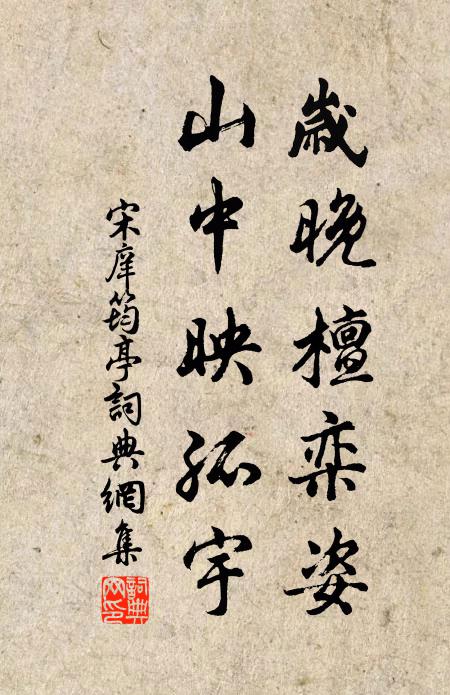 歲晚檀奕姿
山中映孤宇
宋庠筠亭詞典網集
詞典